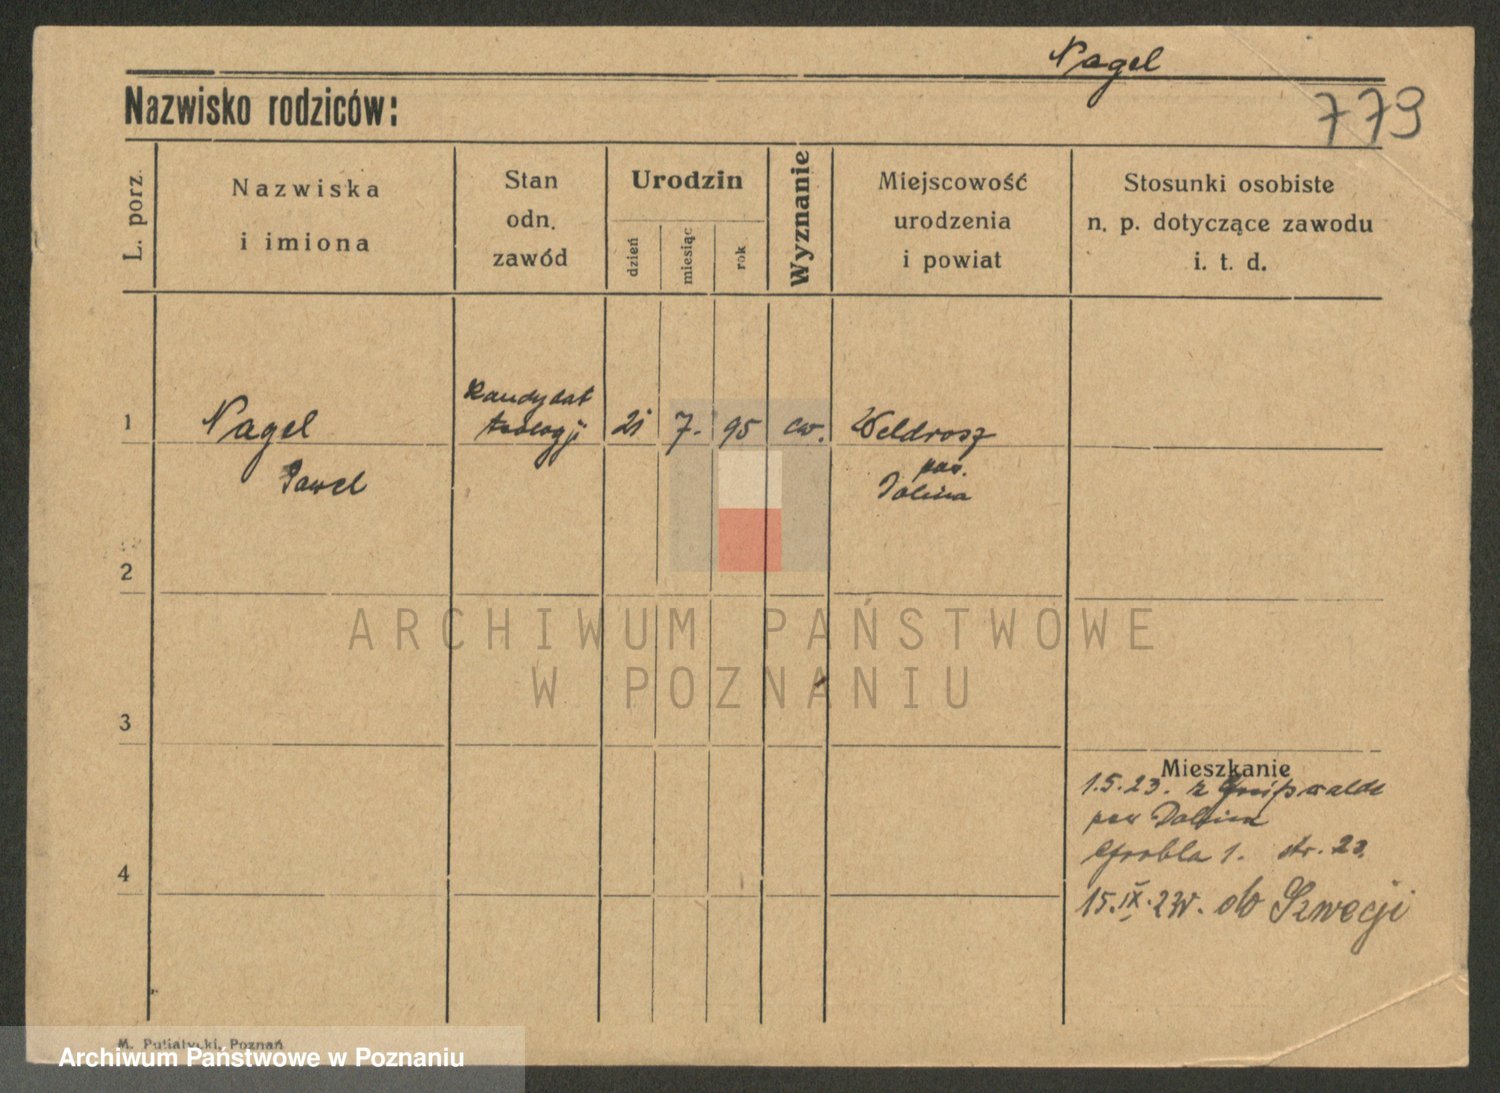 Nagel
779
Nazwisko rodziców:
L. porz.
Nazwiska
i imiona
Stan
odn.
zawód
Urodzin
dzień
miesiąc
rok
Wyznanie
Miejscowość
urodzenia
i powiat
Stosunki osobiste
n. p. dotyczące zawodu
i. t. d.
1
Nagel
Paweł
Kandydat
teologji
21 7. 95 ew.
Weldrosz
pow.
Dolina
2
3
4
ARCHIWUM PAŃSTWOWE
W POZNANIU
Mieszkanie
1.5.23. z
pow Dolina
Grobla 1. str. 23.
15.IX.23 do Szwecji
M. Putiatycki, Poznań
Archiwum Państwowe w Poznaniu